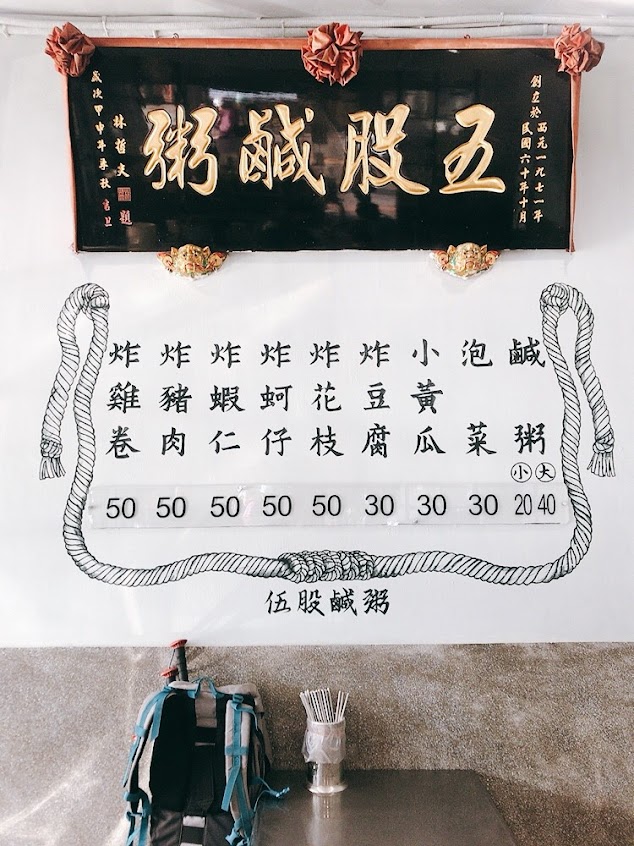 創立於西元一九七一年
民國六十年十月
五股鹹粥
林哲夫 題
歲次甲申年季秋吉旦
鹹粥 大 40 小 20
泡菜 30
小黃瓜 30
炸豆腐 30
炸花枝 50
炸蚵仔 50
炸蝦仁 50
炸豬肉 50
炸雞卷 50
伍股鹹粥